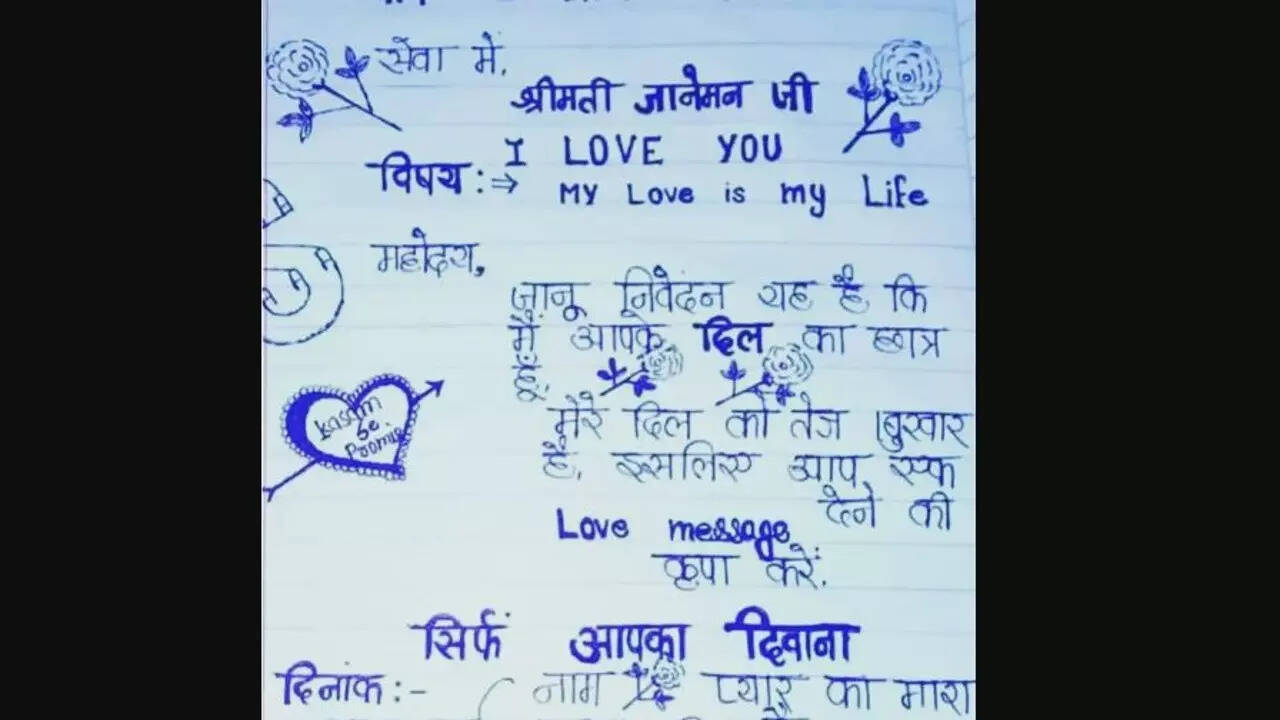 सेवा में,
श्रीमती जानेमन जी
I LOVE YOU
विषय :⇒ My Love is my Life
महोदय,
जानू निवेदन यह है कि
मैं आपके दिल का छात्र
हूँ.
मेरे दिल को तेज बुखार
है. इसलिए आप एक
Love message देने की
कृपा करें.
Kasam
Se
Promis
सिर्फ आपका दिवाना
दिनांक :- नाम प्यार का मारा